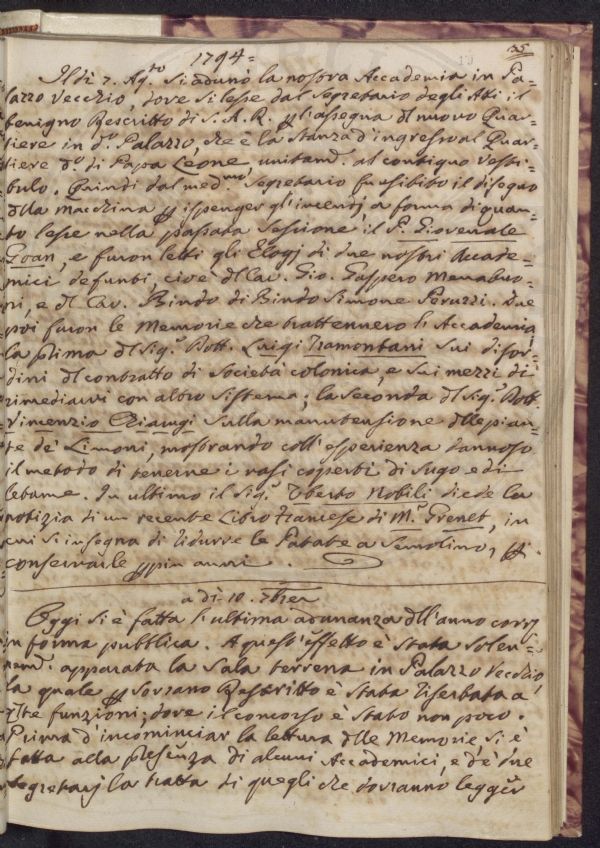 35
1794=
Il dì 7. Ag.to si adunò la nostra Accademia in Pa-
lazzo vecchio, dove si lesse dal Segretario degli Atti il
benigno Rescritto di S. A. R. p l'assegna del nuovo Quar-
tiere in d.o Palazzo, che è la Stanza d'ingresso al Quar-
tiere d.o di Papa Leone unitam. al contiguo Vesti-
bulo. Quindi dal med.mo Segretario fu esibito il disegno
della Macchina p ispenger gl'incendj a forma di quan-
to lesse nella passata Sessione il S. Giovenale
Goan, e furon letti gli Elogj di due nostri Accade-
mici defunti, cioè del Cav. Gio. Gaspero Menabuo-
ni, e del Cav. Bindo di Bindo Simone Peruzzi. Due
poi furon le Memorie che trattennero l'Accademia,
la prima del Sig.r Dott. Luigi Tramontani sui disor-
dini del contratto di Società colonica, e sui mezzi di
rimediarvi con altro sistema; la seconda del Sig.r Dott.
Vincenzio Chiarugi sulla manutensione delle pian-
te de' Limoni, mostrando coll'esperienza dannoso
il metodo di tenerne i vasi coperti di sugo e di
letame. In ultimo il Sig.r Uberto Nobili diede la
notizia di un recente Libro Francese di M.r Grenet, in
cui si insegna di ridurre le Patate a Semolino, p
conservarle p più anni.
a dì 10. 7bre
Oggi si è fatta l'ultima adunanza dell'anno corr.
in forma pubblica. A quest'effetto è stata solen-
nem. apparata la Sala terrena in Palazzo Vecchio,
la quale p Sovrano Rescritto è stata riserbata a
q.ste funzioni; dove il concorso è stato non poco.
Prima d'incominciar la lettura delle Memorie, si è
fatta alla presenza di alcuni Accademici, e de' due
Segretarj la tratta di quegli che dovranno legger